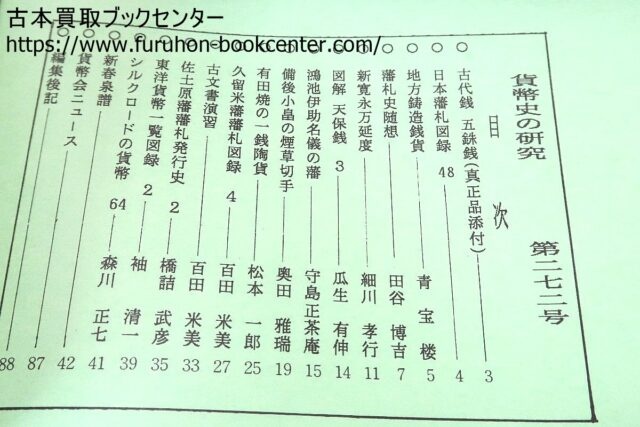 古本買取ブックセンター
https://www.furuhon-bookcenter.com/
貨幣史の研究　第二七二号
目次
古代銭 五銖銭(真正品添付) 3
日本藩札図録 48 4
地方鋳造銭貨 青宝楼 5
藩札史随想 田谷博吉 7
新寛永万延度 細川孝行 11
図解 天保銭 3 瓜生有伸 14
鴻池伊助名儀の藩 守島正茶庵 15
備後小畠の煙草切手 奥田雅瑞 19
有田焼の一銭陶貨 松本一郎 25
久留米藩藩札図録 4 百田米美 27
古文書演習 百田米美 33
佐土原藩藩札発行史 2 橋詰武彦 35
東洋貨幣一覧図録 2 袖清一 39
シルクロードの貨幣 64 森川正七 41
新春泉譜 42
貨幣会ニュース 87
編集後記 88